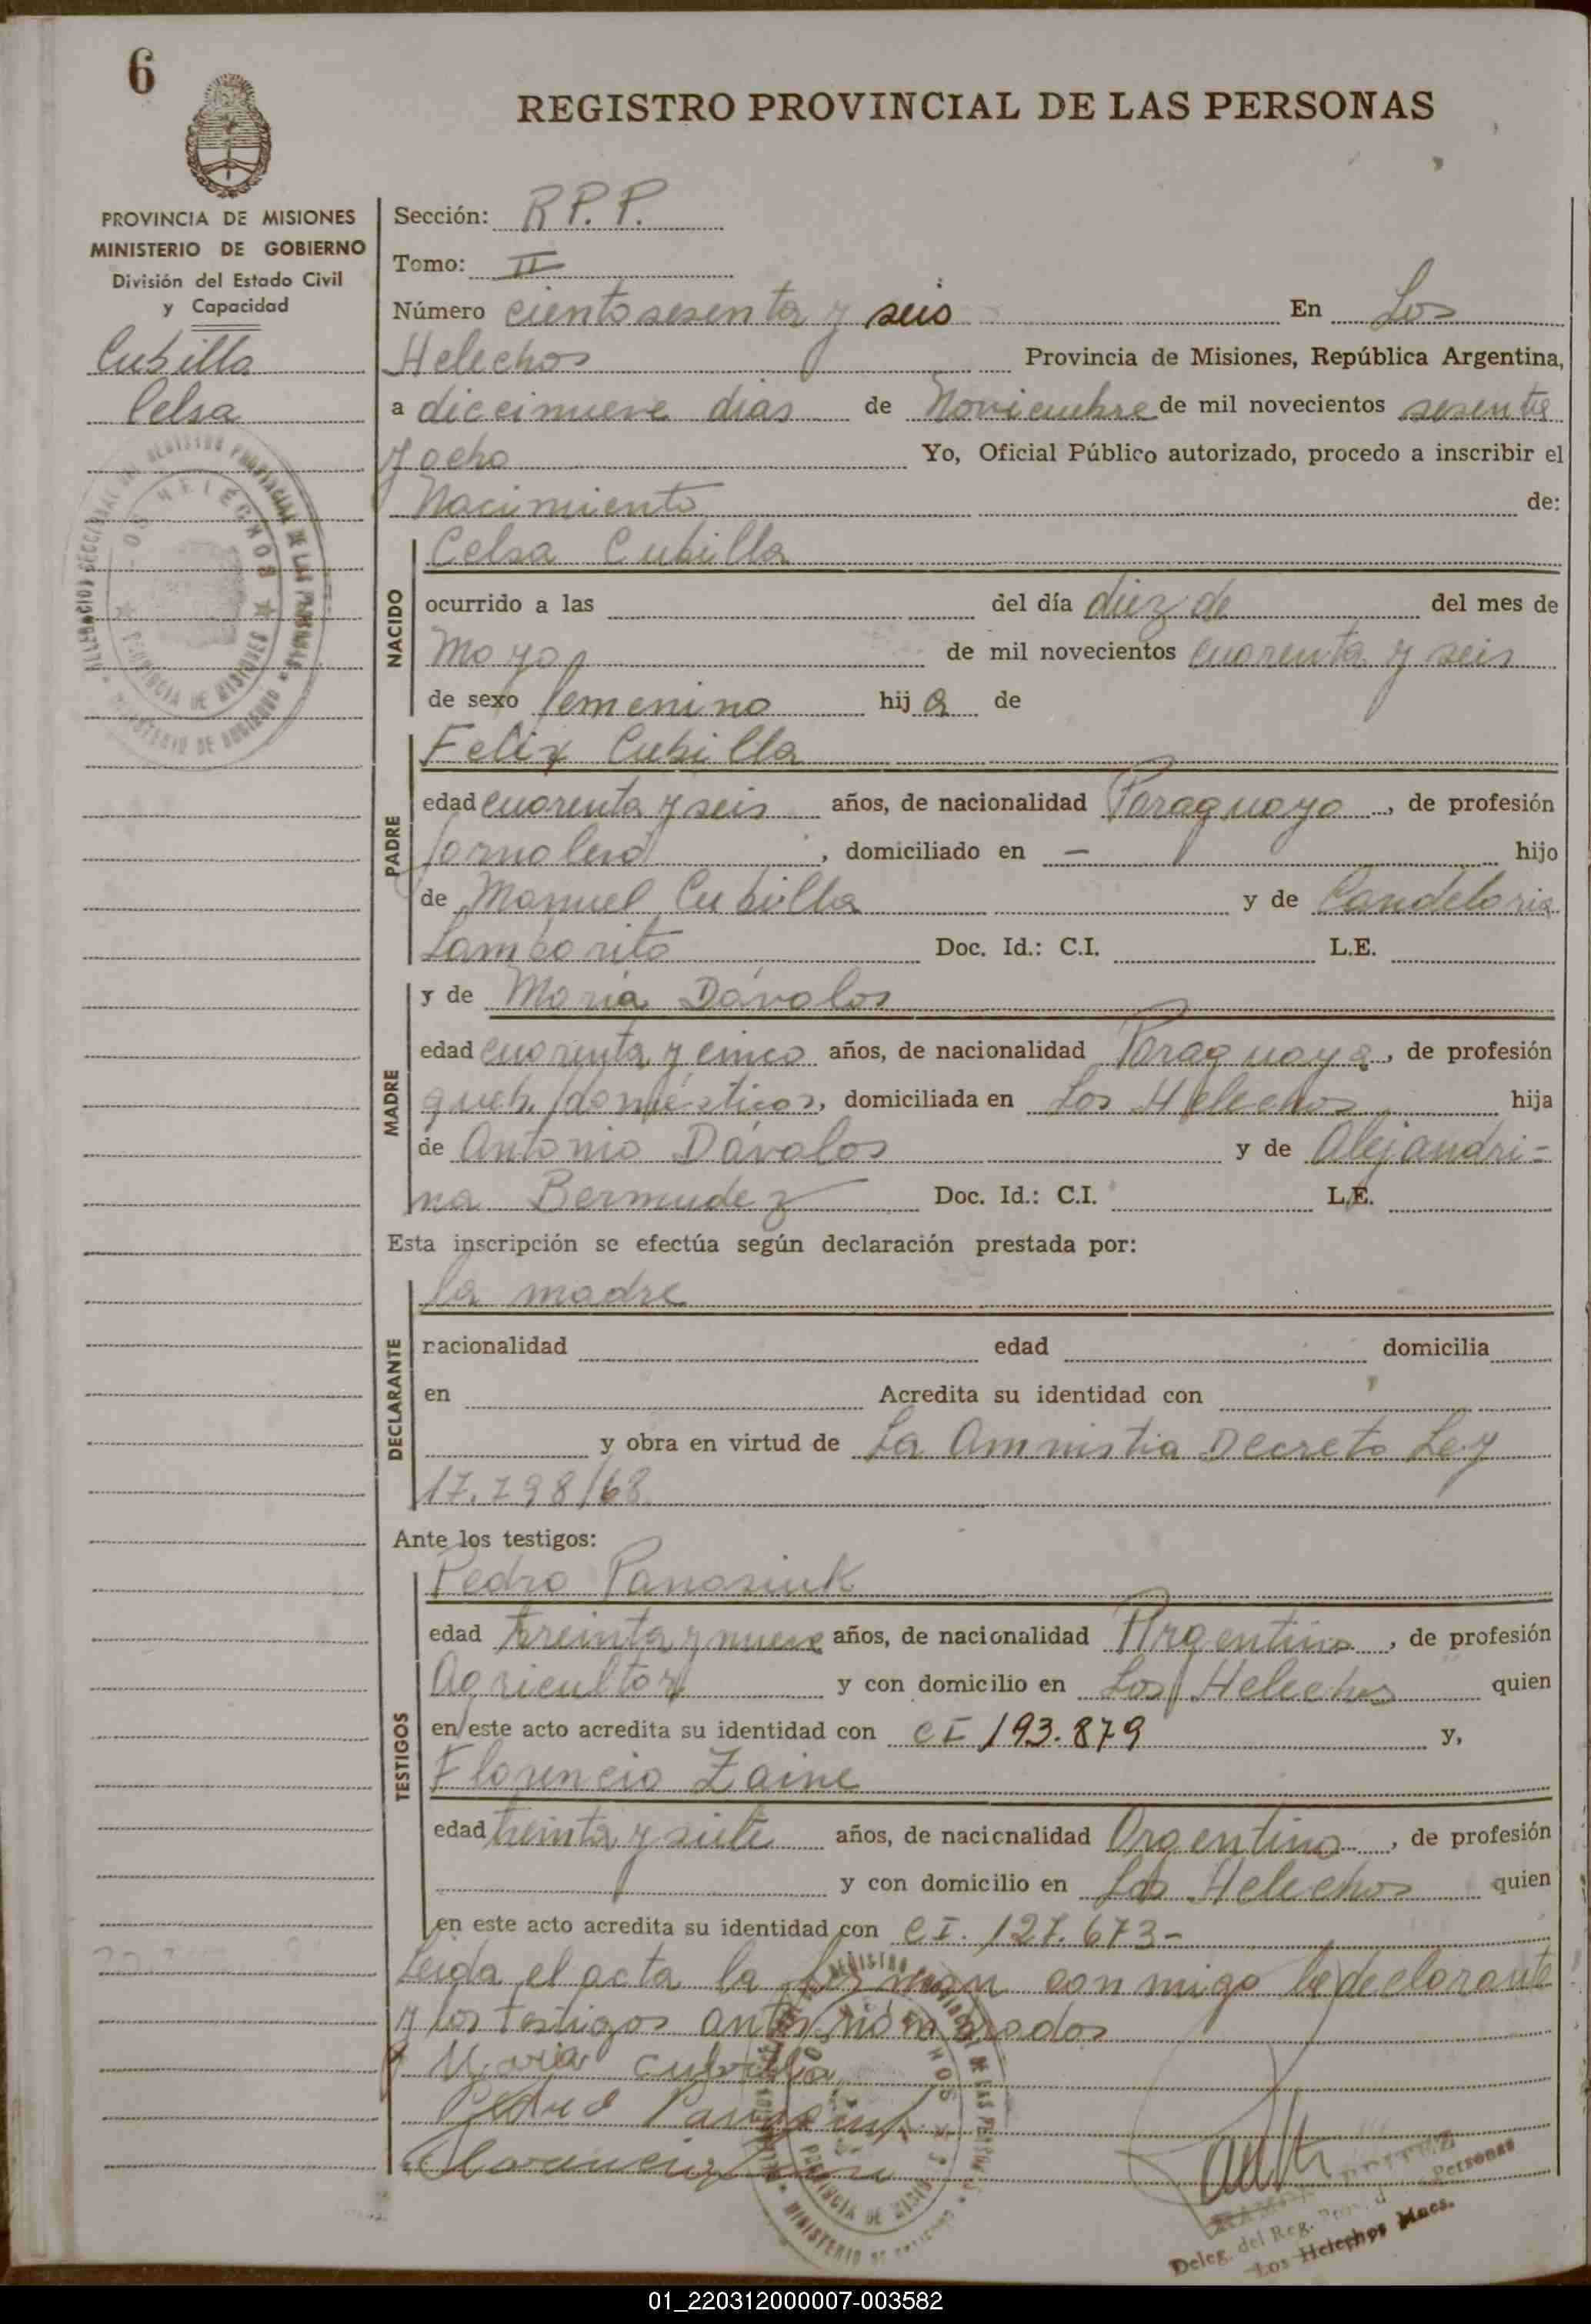 6
REGISTRO PROVINCIAL DE LAS PERSONAS
PROVINCIA DE MISIONES
MINISTERIO DE GOBIERNO
División del Estado Civil
y Capacidad
Cubilla
Celsa
Sección: R P. P.
Tomo: II
Número ciento sesenta y seis En Los
Helechos Provincia de Misiones, República Argentina,
a diecinueve dias de Noviembre de mil novecientos sesenta
y ocho Yo, Oficial Público autorizado, procedo a inscribir el
Nacimiento de:
NACIDO
Celsa Cubilla
ocurrido a las del día diez de del mes de
Mayo de mil novecientos cuarenta y seis
de sexo femenino hij a de
PADRE
Felix Cubilla
edad cuarenta y seis años, de nacionalidad Paraguayo, de profesión
Jornalero, domiciliado en — hijo
de Manuel Cubilla y de Candelaria
Lambarito Doc. Id.: C.I. L.E.
MADRE
y de Maria Dávalos
edad cuarenta y cinco años, de nacionalidad Paraguaya, de profesión
queh. domésticos, domiciliada en Los Helechos hija
de Antonio Dávalos y de Alejandri=
na Bermudez Doc. Id.: C.I. L.E.
Esta inscripción se efectúa según declaración prestada por:
DECLARANTE
la madre
nacionalidad edad domicilia
en Acredita su identidad con
y obra en virtud de La Amnistia Decreto Ley
17.798/68
Ante los testigos:
TESTIGOS
Pedro Panasiuk
edad treinta y nueve años, de nacionalidad Argentino, de profesión
Agricultor y con domicilio en Los Helechos quien
en este acto acredita su identidad con CI 193.879 y,
Florencio Zaine
edad treinta y siete años, de nacionalidad Argentino, de profesión
y con domicilio en Los Helechos quien
en este acto acredita su identidad con CI. 127.673-
Leida el acta la firman conmigo la declarante
y los testigos antes nombrados
Maria Cubilla
Pedro Panasiuk
Deleg. del Reg. Prov. d Personas
Los Helechos Mnes.
DELEGACION SECCIONAL DEL REGISTRO PROVINCIAL DE LAS PERSONAS
LOS HELECHOS
PROVINCIA DE MISIONES
MINISTERIO DE GOBIERNO
01_220312000007-003582